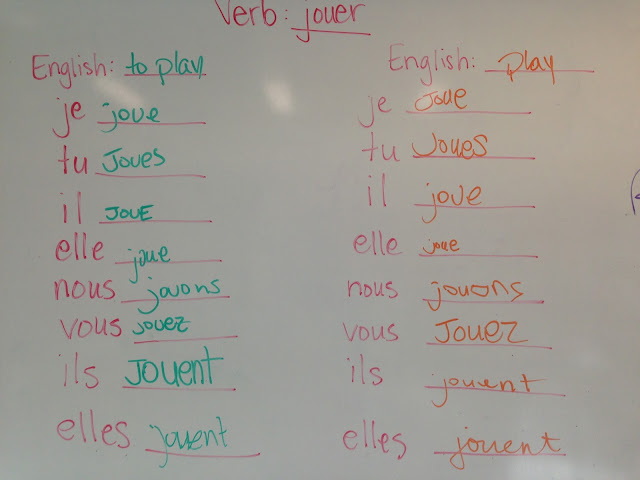 Verb: jouer
English: to play
je joue
tu Joues
il JOUE
elle joue
nous jouons
vous jouez
ils JOUENT
elles jouent
English: Play
je Joue
tu Joues
il joue
elle joue
nous jouons
vous JOUEZ
ils jouent
elles jouent